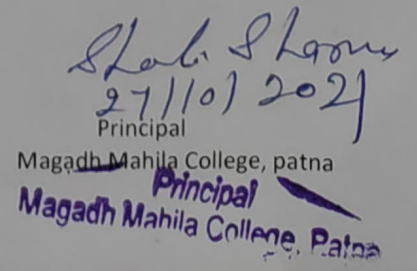 Shashi Sharma
27/10/2021
Principal
Magadh Mahila College, patna
Principal
Magadh Mahila College, Patna